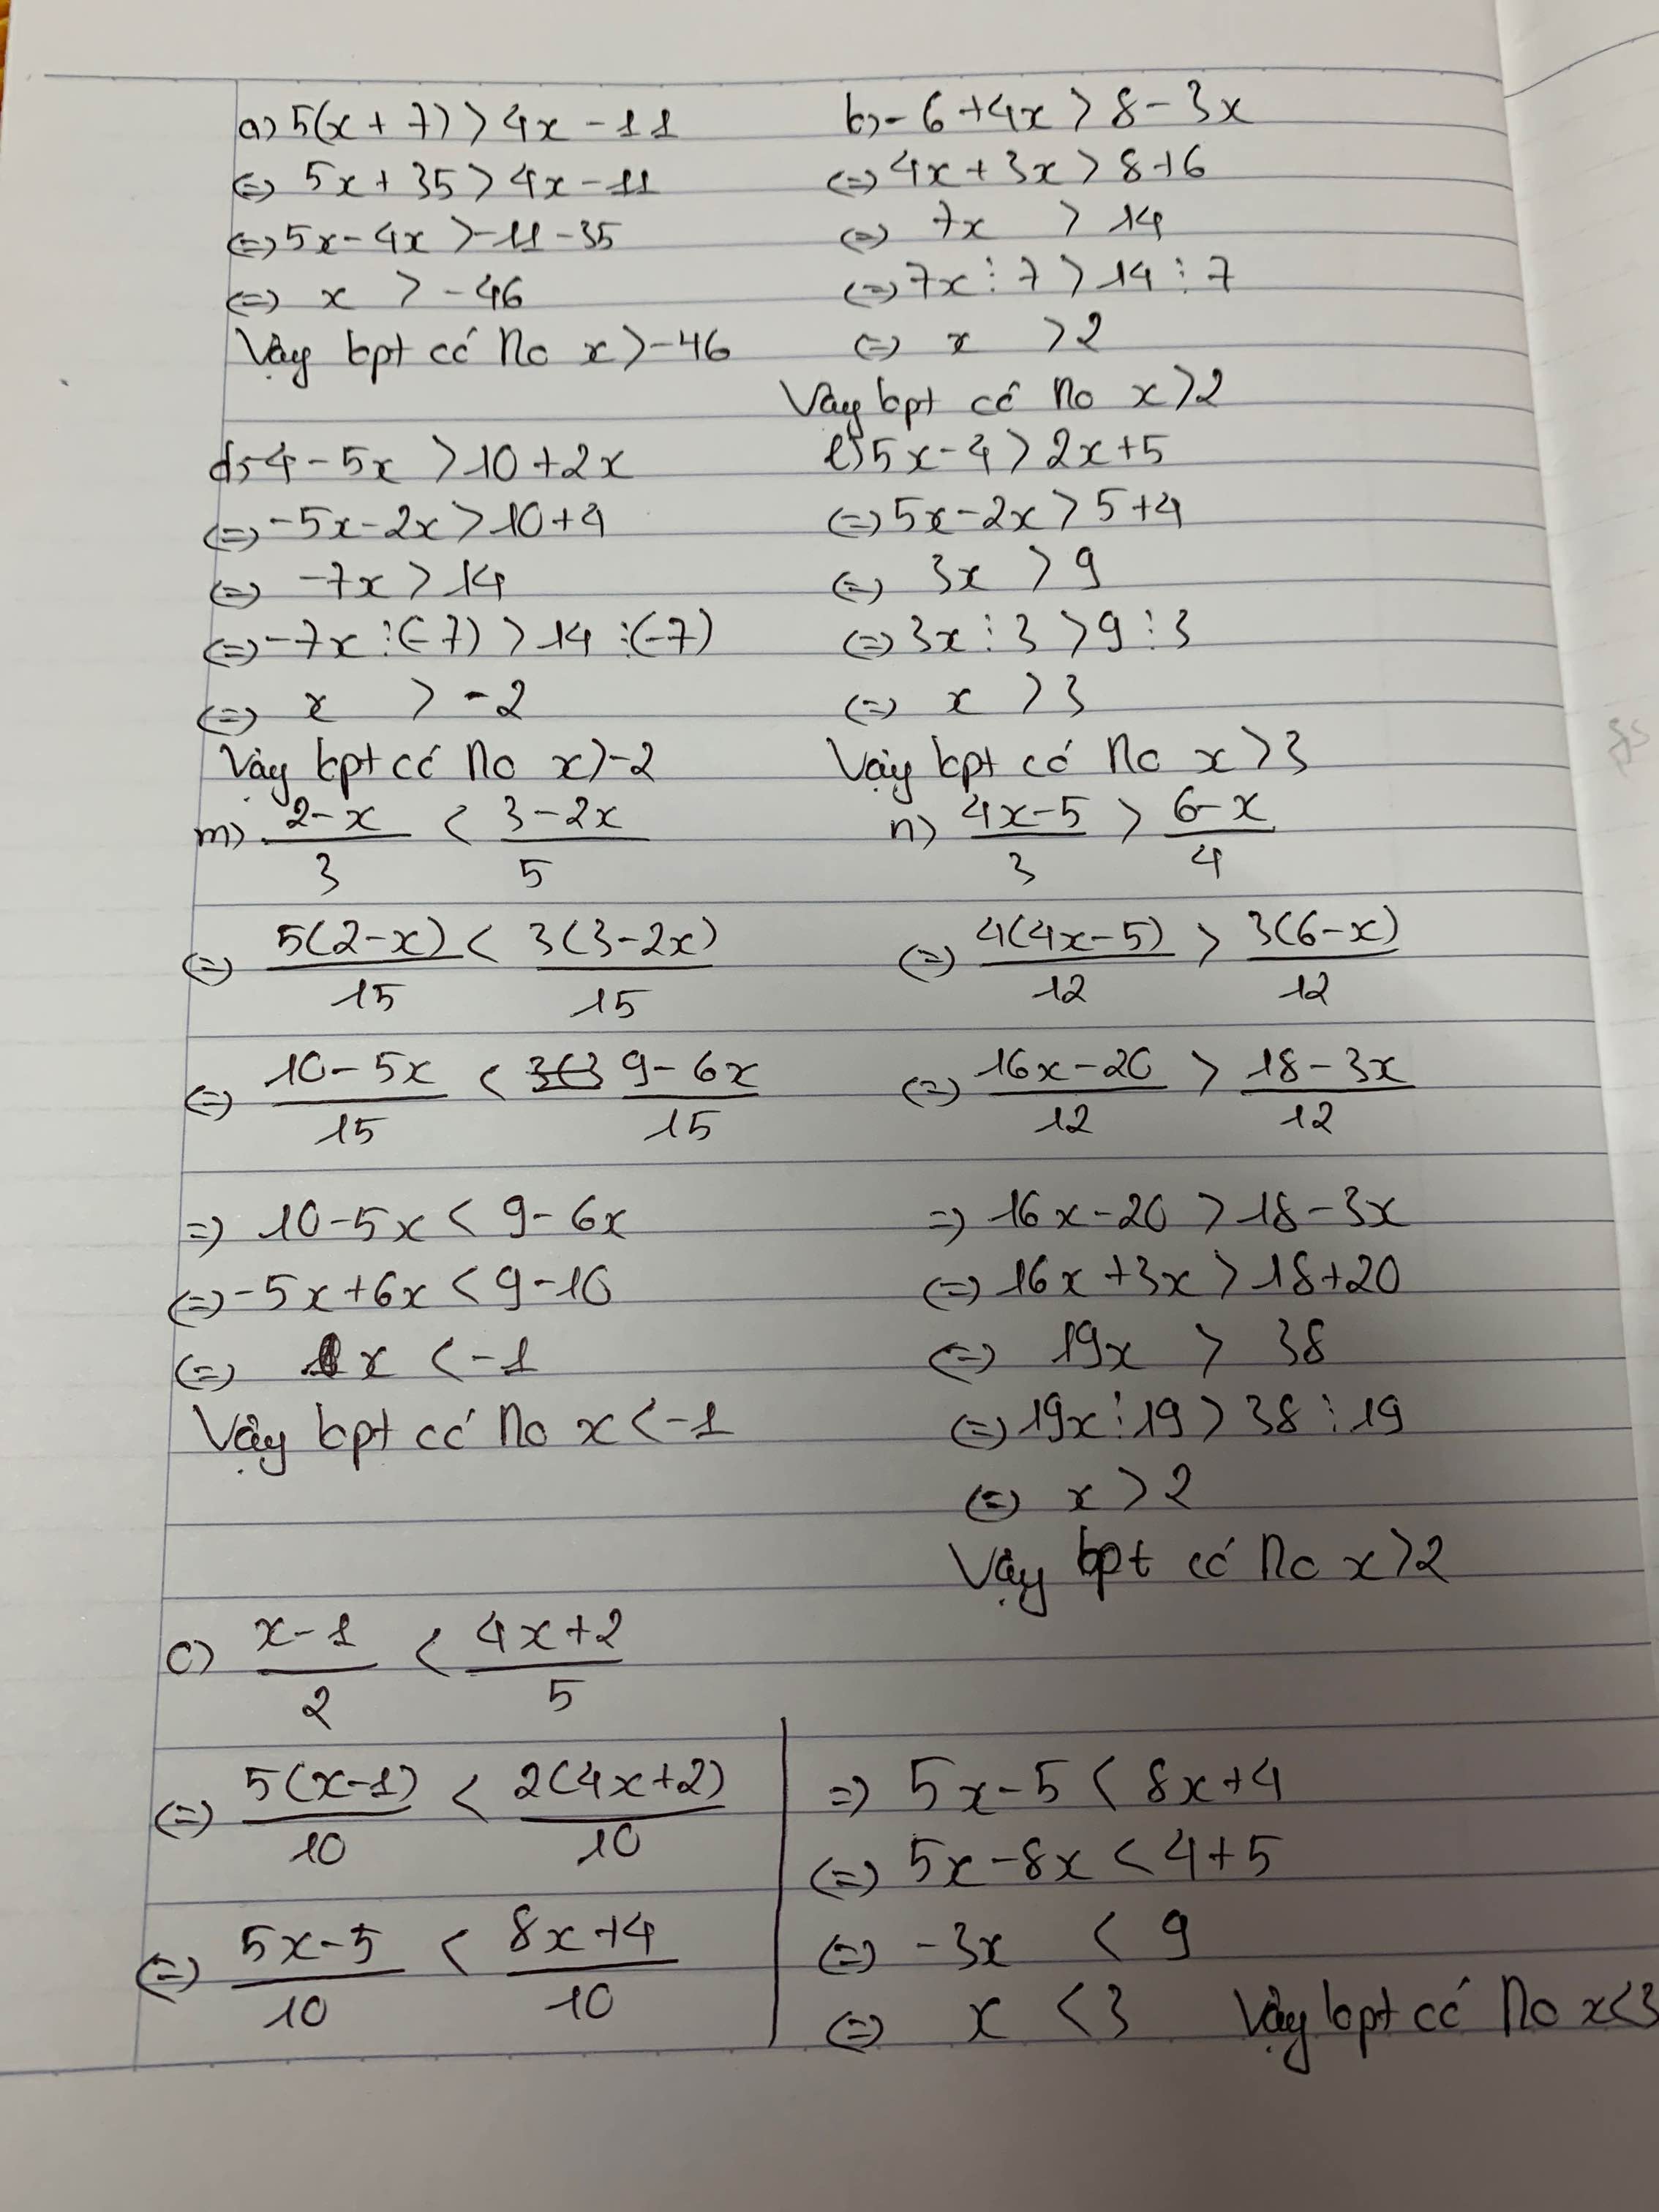 a) 5(x + 7) > 4x - 11
(=) 5x + 35 > 4x - 11
(=) 5x - 4x > -11 - 35
(=) x > -46
Vậy bpt có no x > -46
b) -6 + 4x > 8 - 3x
(=) 4x + 3x > 8 + 6
(=) 7x > 14
(=) 7x : 7 > 14 : 7
(=) x > 2
Vay bpt có no x > 2
d) -4 - 5x > 10 + 2x
(=) -5x - 2x > 10 + 4
(=) -7x > 14
(=) -7x : (-7) > 14 : (-7)
(=) x > -2
Vậy bpt có no x > -2
e) 5x - 4 > 2x + 5
(=) 5x - 2x > 5 + 4
(=) 3x > 9
(=) 3x : 3 > 9 : 3
(=) x > 3
Vậy bpt có no x > 3
m) (2 - x)/3 < (3 - 2x)/5
(=) 5(2 - x)/15 < 3(3 - 2x)/15
(=) (10 - 5x)/15 < (9 - 6x)/15
=) 10 - 5x < 9 - 6x
(=) -5x + 6x < 9 - 10
(=) x < -1
Vậy bpt có no x < -1
n) (4x - 5)/3 > (6 - x)/4
(=) 4(4x - 5)/12 > 3(6 - x)/12
(=) (16x - 20)/12 > (18 - 3x)/12
=) 16x - 20 > 18 - 3x
(=) 16x + 3x > 18 + 20
(=) 19x > 38
(=) 19x : 19 > 38 : 19
(=) x > 2
Vậy bpt có no x > 2
c) (x - 1)/2 < (4x + 2)/5
(=) 5(x - 1)/10 < 2(4x + 2)/10
(=) (5x - 5)/10 < (8x + 4)/10
=) 5x - 5 < 8x + 4
(=) 5x - 8x < 4 + 5
(=) -3x < 9
(=) x < 3 Vậy bpt có no x < 3